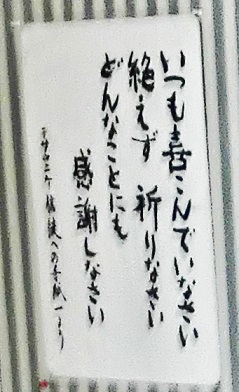 いつも喜こんでいなさい
絶えず 祈りなさい
どんなことにも
感謝しなさい
テサロニケ信徒への手紙一より